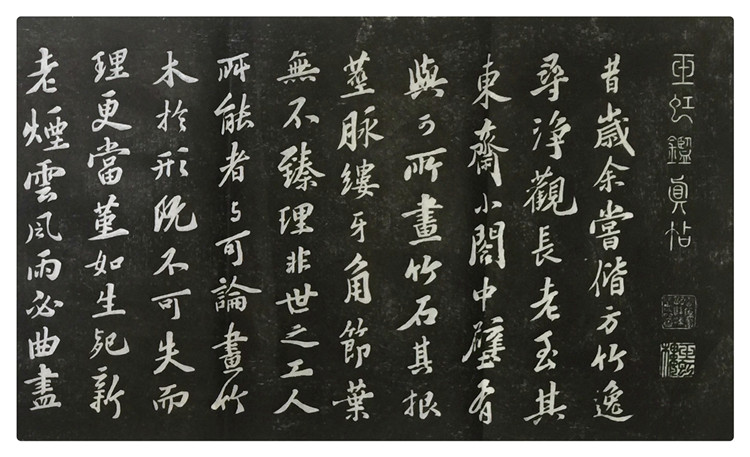 玉虹鑑真帖
昔歲余嘗偕方竹逸
尋淨觀長老至其
東齋小閣中壁有
與可所畫竹石其根
莖脉縷牙角節葉
無不臻理非世之工人
所能者与可論畫竹
木於形既不可失而
理更當董如生死新
老煙雲風雨必曲盡